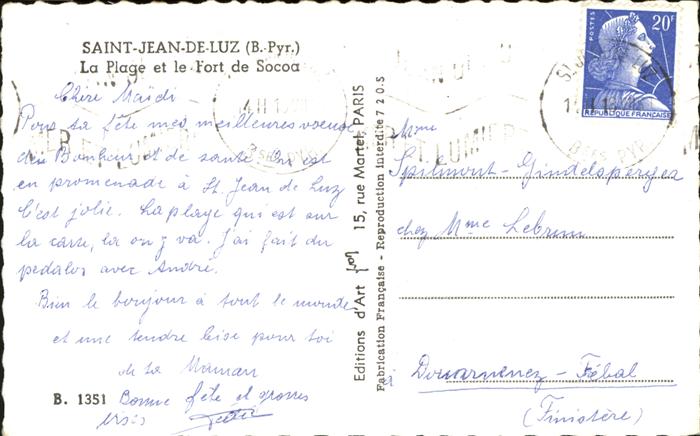 SAINT-JEAN-DE-LUZ (B.-Pyr.)
La Plage et le Fort de Socoa
Chère Maïdi -
Pour ta fête mes meilleures voeux
de Bonheur et de santé. On est
en promenade à St Jean de Luz
C'est jolie. La plage qui est sur
la carte, la on y va. J'ai fait du
pedalos avec André.
Bien le bonjour à tout le monde
et une tendre bise pour toi
de ta Maman
B. 1351 Bonne fête et grosses
bises
Editions d'Art Yvon 15, rue Martel, PARIS
Fabrication Française - Reproduction Interdite 7 2 0 S
POSTES
20F
REPUBLIQUE FRANÇAISE
BSES PYR
Mme
Spilmont-Gindelsperger
chez Mme Lebrun
à Douarnenez - Tréboul
(Finistère)